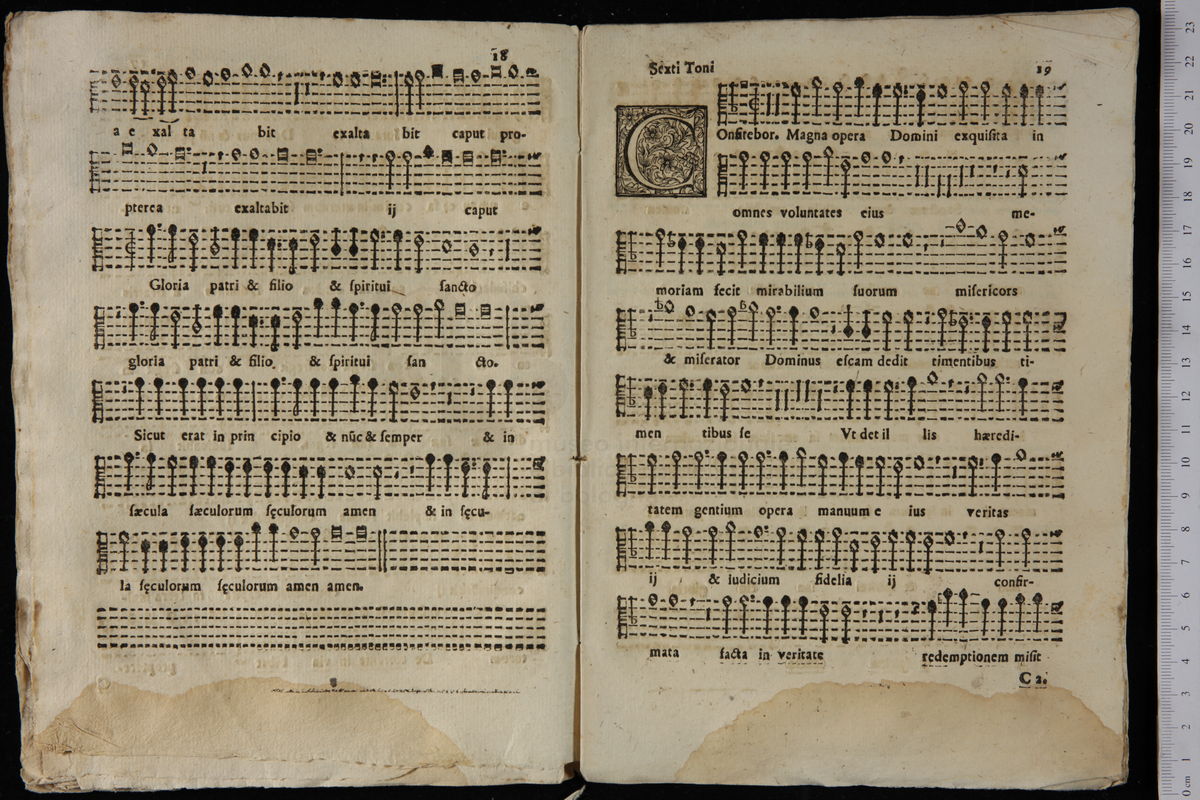 18
a e xal ta bit exalta bit caput pro-
pterea exaltabit ij caput
Gloria patri & filio & ſpiritui ſancto
gloria patri & filio. & ſpiritui ſan cto.
Sicut erat in prin cipio & nũc & ſemper & in
ſæcula ſæculorum ſęculorum amen & in ſęcu-
la ſęculorum ſęculorum amen amen.
Sexti Toni 19
COnfitebor. Magna opera Domini exquiſita in
omnes voluntates eius me-
moriam fecit mirabilium ſuorum miſericors
& miſerator Dominus eſcam dedit timentibus ti-
men tibus ſe Vt det il lis hæredi-
tatem gentium opera manuum e ius veritas
ij & iudicium fidelia ij confir-
mata facta in veritate redemptionem miſit
C 2.
23
22
21
20
19
18
17
16
15
14
13
12
11
10
9
8
7
6
5
4
3
2
1
0 cm